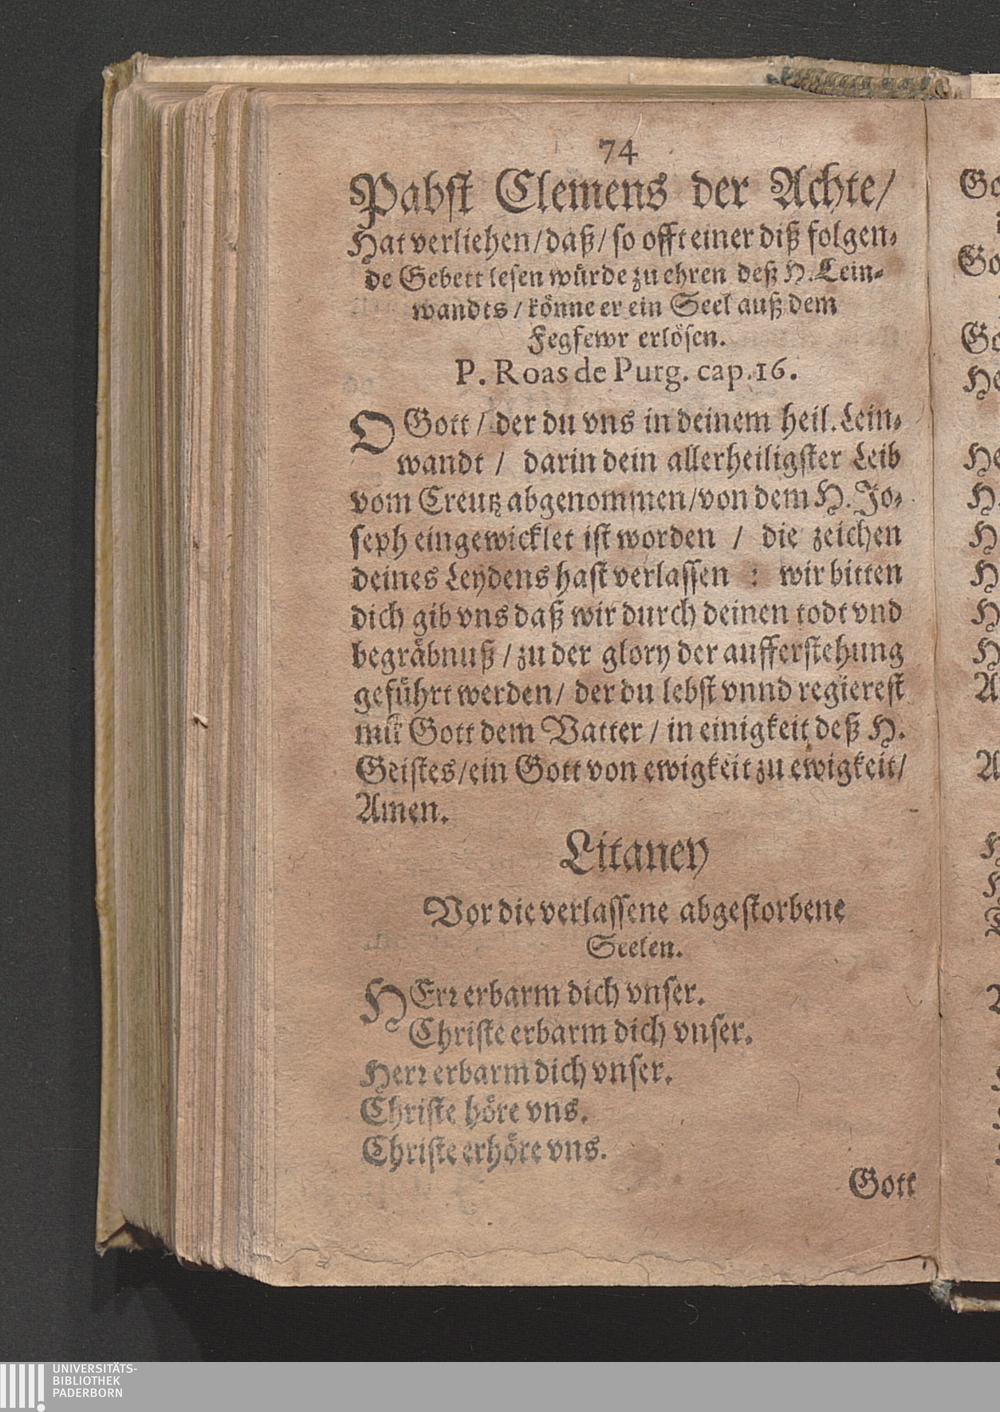 74
Pabst Clemens der Achte/
Hat verliehen/daß/so offt einer diß folgen-
de Gebett lesen würde zu ehren deß H. Lein-
wandts/könne er ein Seel auß dem
Fegfewr erlösen.
P. Roas de Purg. cap. 16.
O Gott/der du vns in deinem heil. Lein-
wandt/ darin dein allerheiligster Leib
vom Creutz abgenommen/von dem H. Jo-
seph eingewicklet ist worden / die zeichen
deines Leydens hast verlassen : wir bitten
dich gib vns daß wir durch deinen todt vnd
begräbnuß/zu der glory der aufferstehung
geführt werden/ der du lebst vnnd regierest
mit Gott dem Vatter/in einigkeit deß H.
Geistes/ein Gott von ewigkeit zu ewigkeit/
Amen.
Litaney
Vor die verlassene abgestorbene
Seelen.
HErr erbarm dich vnser.
Christe erbarm dich vnser.
Herr erbarm dich vnser.
Christe höre vns.
Christe erhöre vns.
Gott
UNIVERSITÄTS-
BIBLIOTHEK
PADERBORN